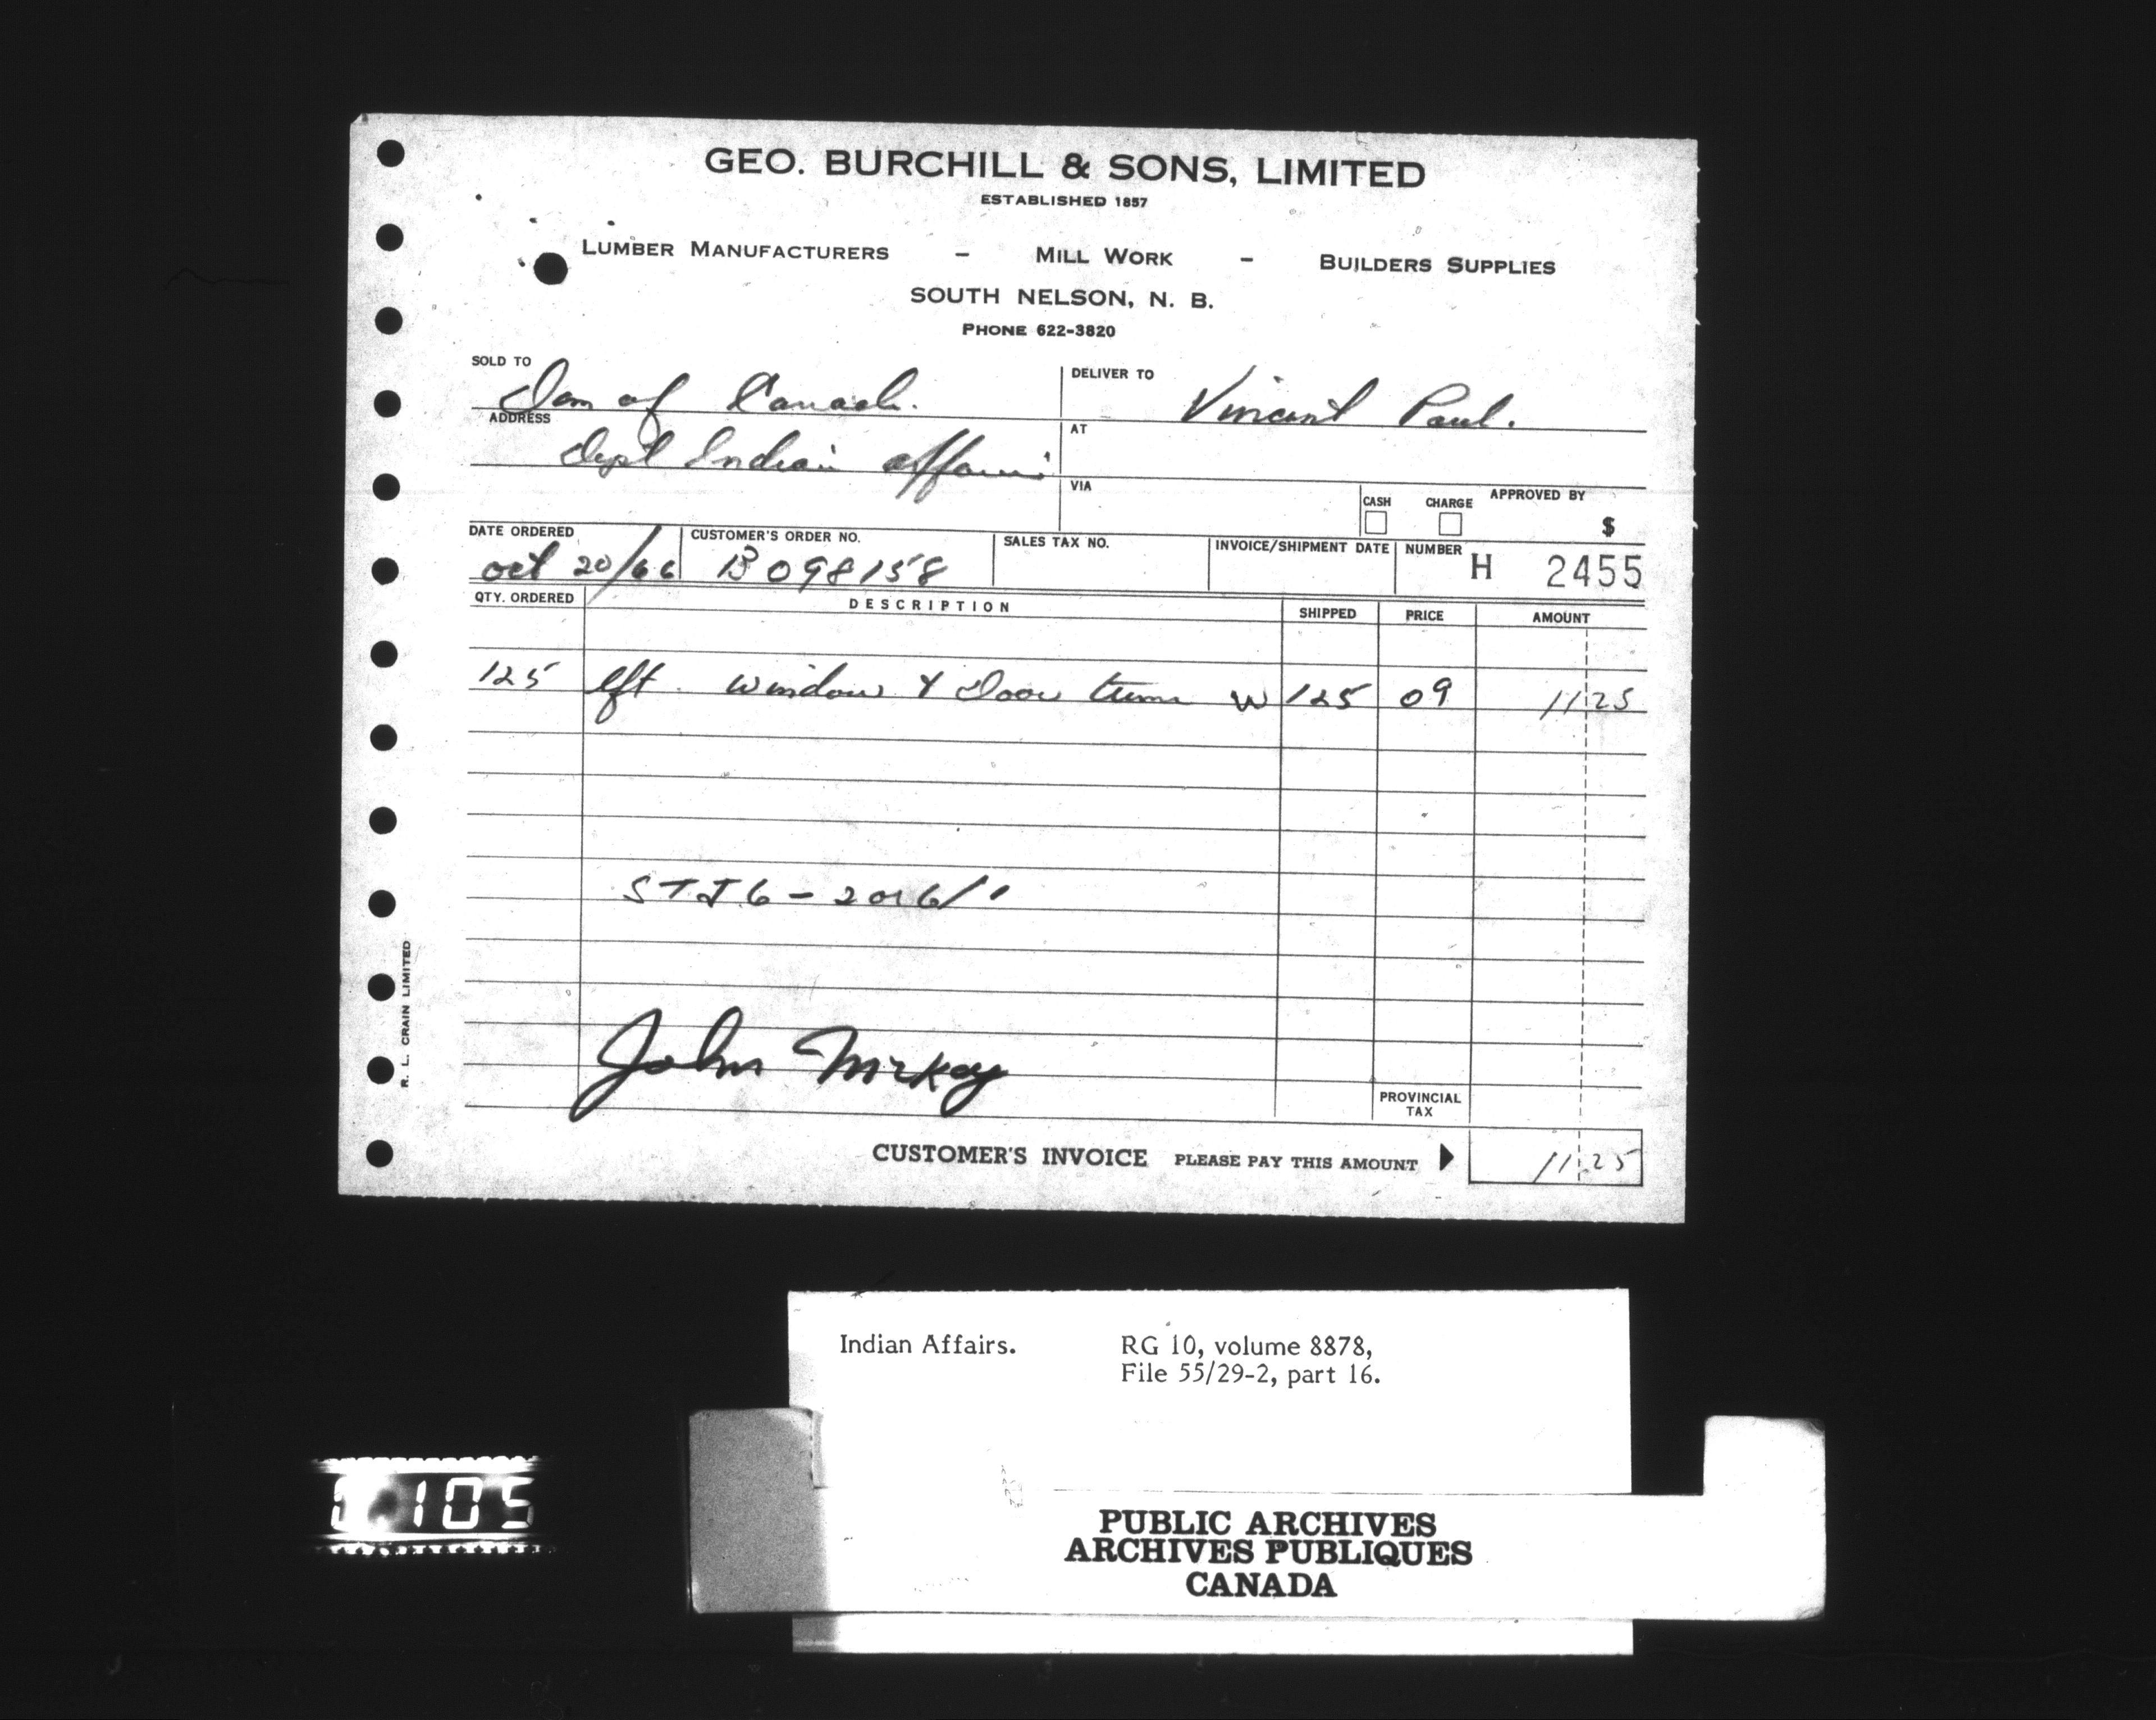 GEO. BURCHILL & SONS, LIMITED
ESTABLISHED 1857
LUMBER MANUFACTURERS – MILL WORK – BUILDERS SUPPLIES
SOUTH NELSON, N. B.
PHONE 622-3820
SOLD TO Dom of Canada.
DELIVER TO Vincent Paul.
ADDRESS Dept Indian Affairs
AT
VIA
CASH CHARGE APPROVED BY
$
DATE ORDERED CUSTOMER'S ORDER NO. SALES TAX NO. INVOICE/SHIPMENT DATE NUMBER
Oct 20/66 B098158 H 2455
QTY. ORDERED DESCRIPTION SHIPPED PRICE AMOUNT
125 lft. window & Door trim W 125 09 11 25
John McKay
R. L. CRAIN LIMITED
PROVINCIAL
TAX
CUSTOMER'S INVOICE PLEASE PAY THIS AMOUNT 11 25
Indian Affairs. RG 10, volume 8878,
File 55/29-2, part 16.
105
PUBLIC ARCHIVES
ARCHIVES PUBLIQUES
CANADA